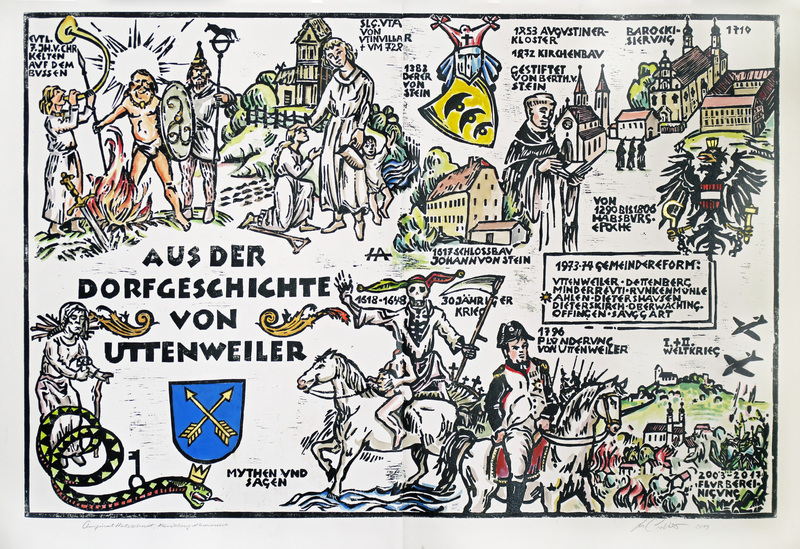 EVTL.
7. JH. V. CHR
KELTEN
AUF DEM
BUSSEN
SLG. UTA
VON
UTINVILLAR
† UM 728
1383
DERER
VON
STEIN
1253 AUGUSTINER-
KLOSTER
1872 KIRCHENBAU
GESTIFTET
VON BERTH. V.
STEIN
BAROCKI-
SIERUNG
1710
VON
1290 BIS 1806
HABSBURG.
EPOCHE
HA
1617 SCHLOSSBAU
JOHANN VON STEIN
AUS DER
DORFGESCHICHTE
VON
UTTENWEILER
1973-74 GEMEINDEREFORM:
UTTENWEILER · DETTENBERG
MINDERREUTI · RUNKENMÜHLE
AHLEN · DIETERSHAUSEN
DIETERSKIRCH · OBERWACHING.
OFFINGEN · SAUGGART
1618-1648
30 JÄHRIGER
KRIEG
1796
PLÜNDERUNG
VON UTTENWEILER
I. + II.
WELTKRIEG
MYTHEN UND
SAGEN
2003-2017
FLURBEREI-
NIGUNG